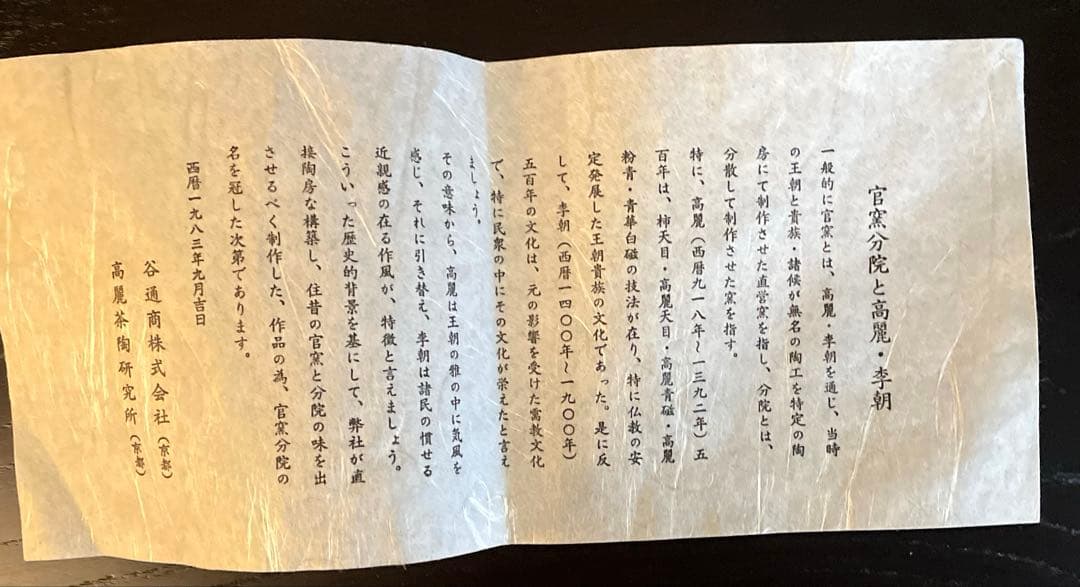 官窯分院と高麗・李朝
一般的に官窯とは、高麗・李朝を通じ、当時
の王朝と貴族・諸候が無名の陶工を特定の陶
房にて制作させた直営窯を指し、分院とは、
分散して制作させた窯を指す。
特に、高麗（西暦九一八年〜一三九二年）五
百年は、柿天目・高麗天目・高麗青磁・高麗
粉青・青華白磁の技法が在り、特に仏教の安
定発展した王朝貴族の文化であった。是に反
して、李朝（西暦一四〇〇年〜一九〇〇年）
五百年の文化は、元の影響を受けた需教文化
で、特に民衆の中にその文化が栄えたと言え
ましょう。
その意味から、高麗は王朝の雅の中に気風を
感じ、それに引き替え、李朝は諸民の慣せる
近親感の在る作風が、特徴と言えましょう。
こういった歴史的背景を基にして、弊社が直
接陶房な構築し、住昔の官窯と分院の味を出
させるべく制作した、作品の為、官窯分院の
名を冠した次第であります。
西暦一九八三年九月吉日
谷通商株式会社（京都）
高麗茶陶研究所（京都）